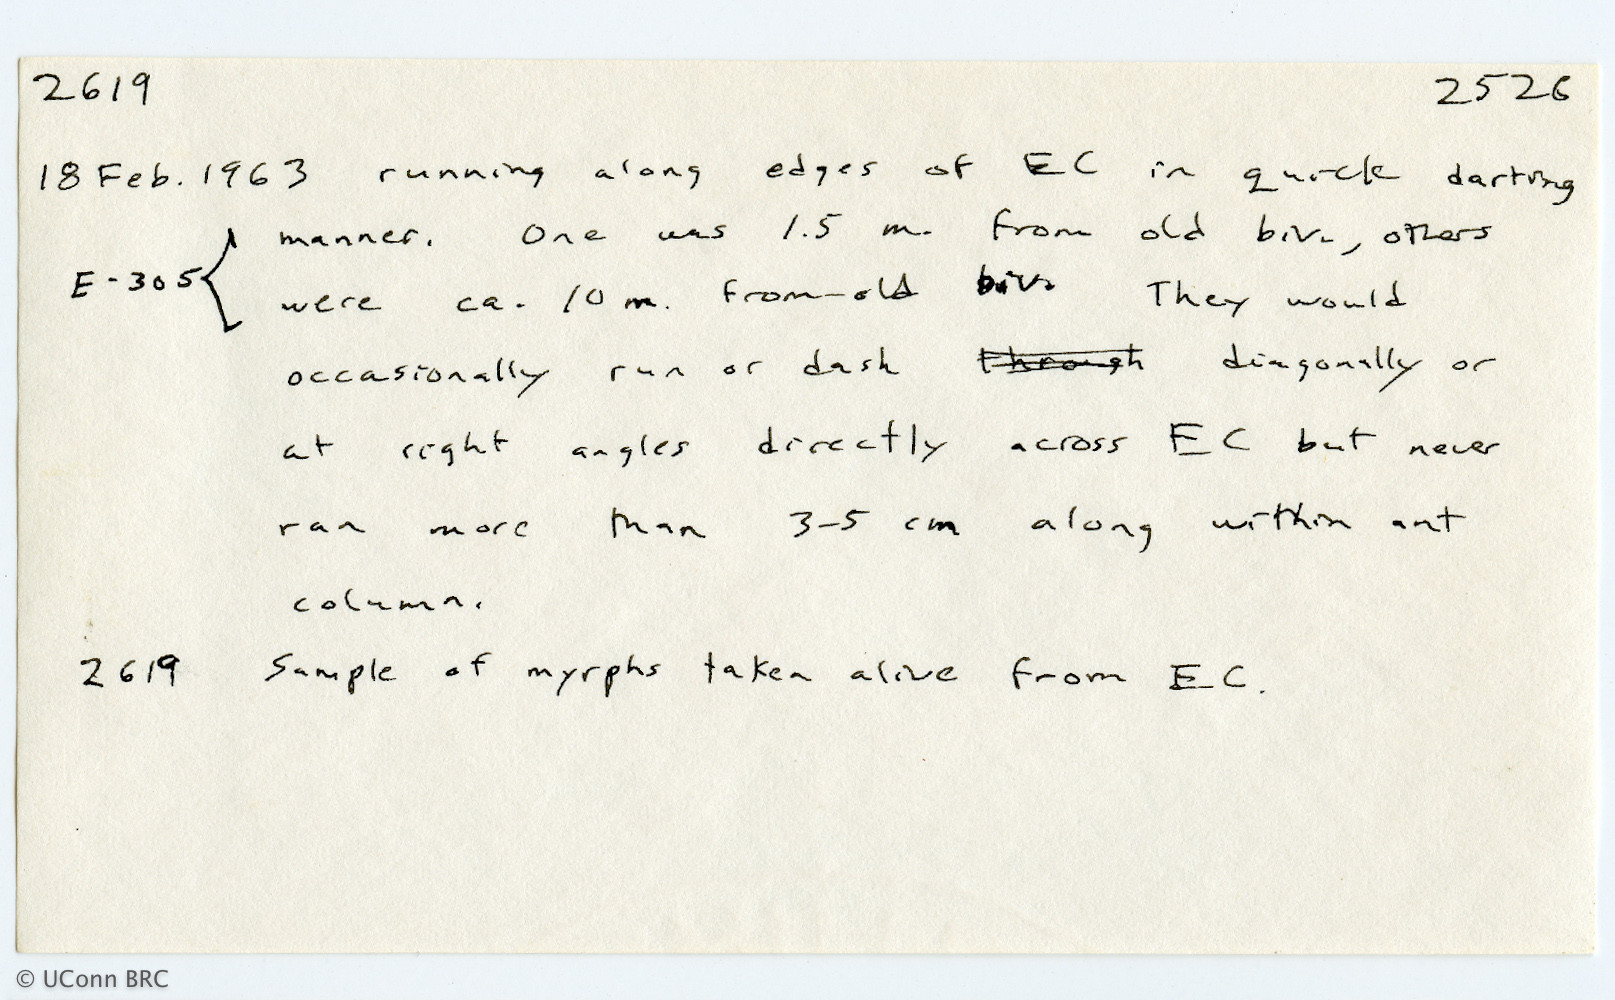 2619 2526
18 Feb. 1963 running along edges of EC in quick darting
manner. One was 1.5 m. from old biv., others
E-305 were ca. 10 m. from old biv. They would
occasionally run or dash through diagonally or
at right angles directly across EC but never
ran more than 3-5 cm along within ant
column.
2619 Sample of myrphs taken alive from EC.
© UConn BRC